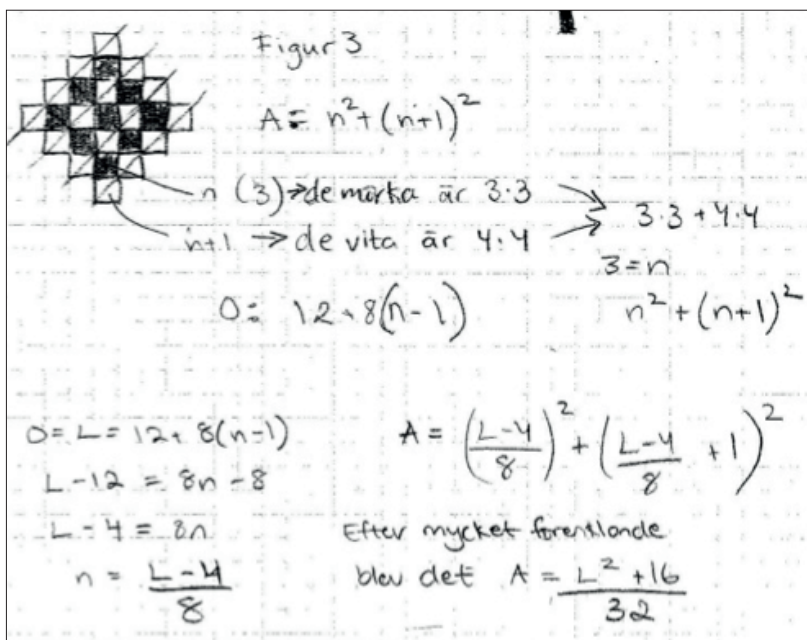 Figur 3
A = n² + (n+1)²
n (3) → de mörka är 3·3
n+1 → de vita är 4·4
3·3 + 4·4
3 = n
n² + (n+1)²
O = 12 + 8(n-1)
O = L = 12 + 8(n-1)
L - 12 = 8n - 8
L - 4 = 8n
n = (L-4)/8
A = ((L-4)/8)² + ((L-4)/8 + 1)²
Efter mycket förenklande
blev det A = (L² + 16)/32